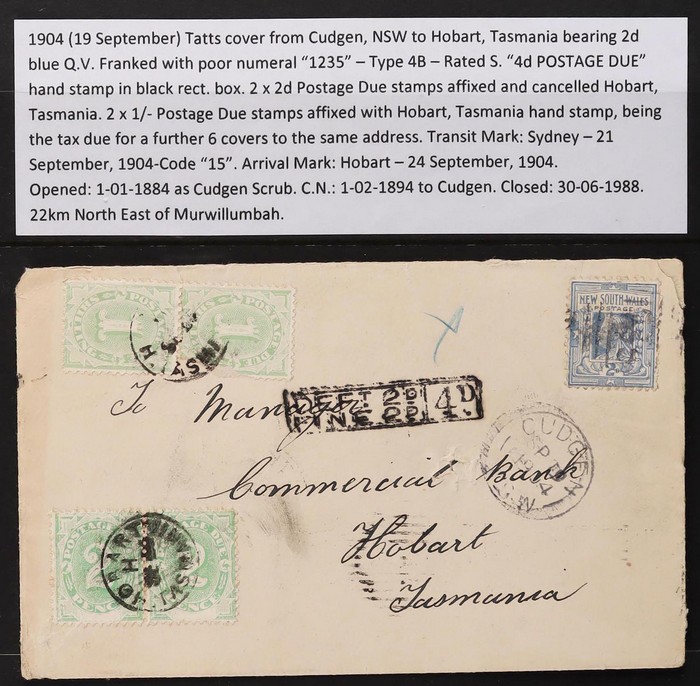 1904 (19 September) Tatts cover from Cudgen, NSW to Hobart, Tasmania bearing 2d
blue Q.V. Franked with poor numeral “1235” – Type 4B – Rated S. “4d POSTAGE DUE”
hand stamp in black rect. box. 2 x 2d Postage Due stamps affixed and cancelled Hobart,
Tasmania. 2 x 1/- Postage Due stamps affixed with Hobart, Tasmania hand stamp, being
the tax due for a further 6 covers to the same address. Transit Mark: Sydney – 21
September, 1904-Code “15”. Arrival Mark: Hobart – 24 September, 1904.
Opened: 1-01-1884 as Cudgen Scrub. C.N.: 1-02-1894 to Cudgen. Closed: 30-06-1988.
22km North East of Murwillumbah.
NEW SOUTH WALES
POSTAGE
POSTAGE DUE
DEFT 2D
FINE 2D
4D
To Manager
CUDGEN
Commercial Bank
Hobart
Tasmania
POSTAGE DUE
HOBART